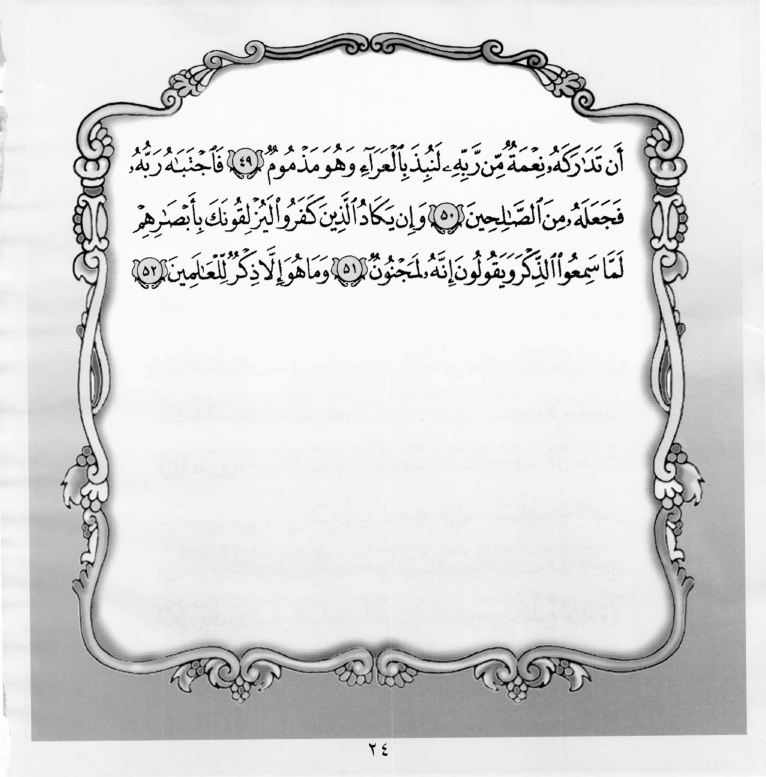 أَن تَدَٰرَكَهُۥ نِعْمَةٌ مِّن رَّبِّهِۦ لَنُبِذَ بِٱلْعَرَآءِ وَهُوَ مَذْمُومٌ ٤٩ فَٱجْتَبَـٰهُ رَبُّهُۥ
فَجَعَلَهُۥ مِنَ ٱلصَّـٰلِحِينَ ٥٠ وَإِن يَكَادُ ٱلَّذِينَ كَفَرُوا۟ لَيُزْلِقُونَكَ بِأَبْصَـٰرِهِمْ
لَمَّا سَمِعُوا۟ ٱلذِّكْرَ وَيَقُولُونَ إِنَّهُۥ لَمَجْنُونٌ ٥١ وَمَا هُوَ إِلَّا ذِكْرٌ لِّلْعَـٰلَمِينَ ٥٢
٢٤